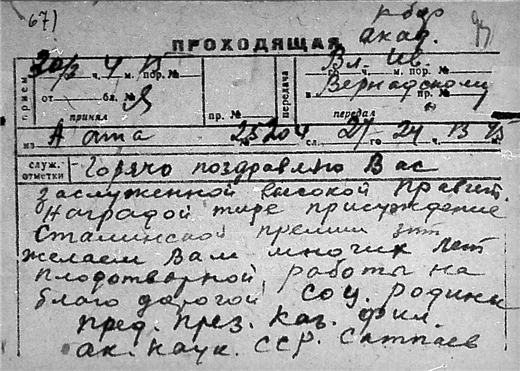 67)
к бар
акад.
ПРОХОДЯЩАЯ
Вл. Ив.
Вернадскому
прием
ч. м. пор. №
от бл. №
принял
пр. №
передача
ч. м. пор. №
в
передал
из А ата № 25204 сл. 27 го 24 ч. 13 м. 15
служ. отметки
Горячо поздравляю Вас
заслуженной высокой Правит.
Наградой тире присуждение
Сталинской премии зпт
желаем Вам многих лет
плодотворной работы на
благо дорогой соц. Родины
пред. През. Каз. фил.
ак. наук. ССР. Сатпаев